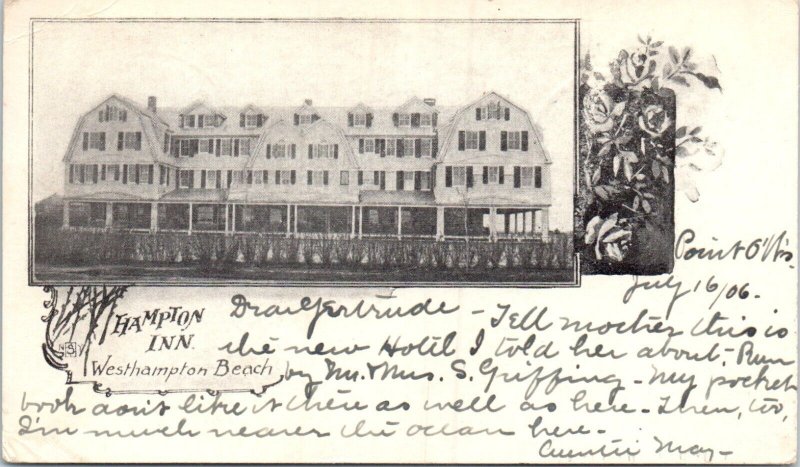 HAMPTON
INN.
Westhampton Beach
Point O'Wds.
July 16/06.
Dear Gertrude - Tell mother this is
the new Hotel I told her about. Run
by Mr. & Mrs. S. Griffing - My pocket
book don't like it there as well as here - Then, too,
I'm much nearer the ocean here -
Auntie May -